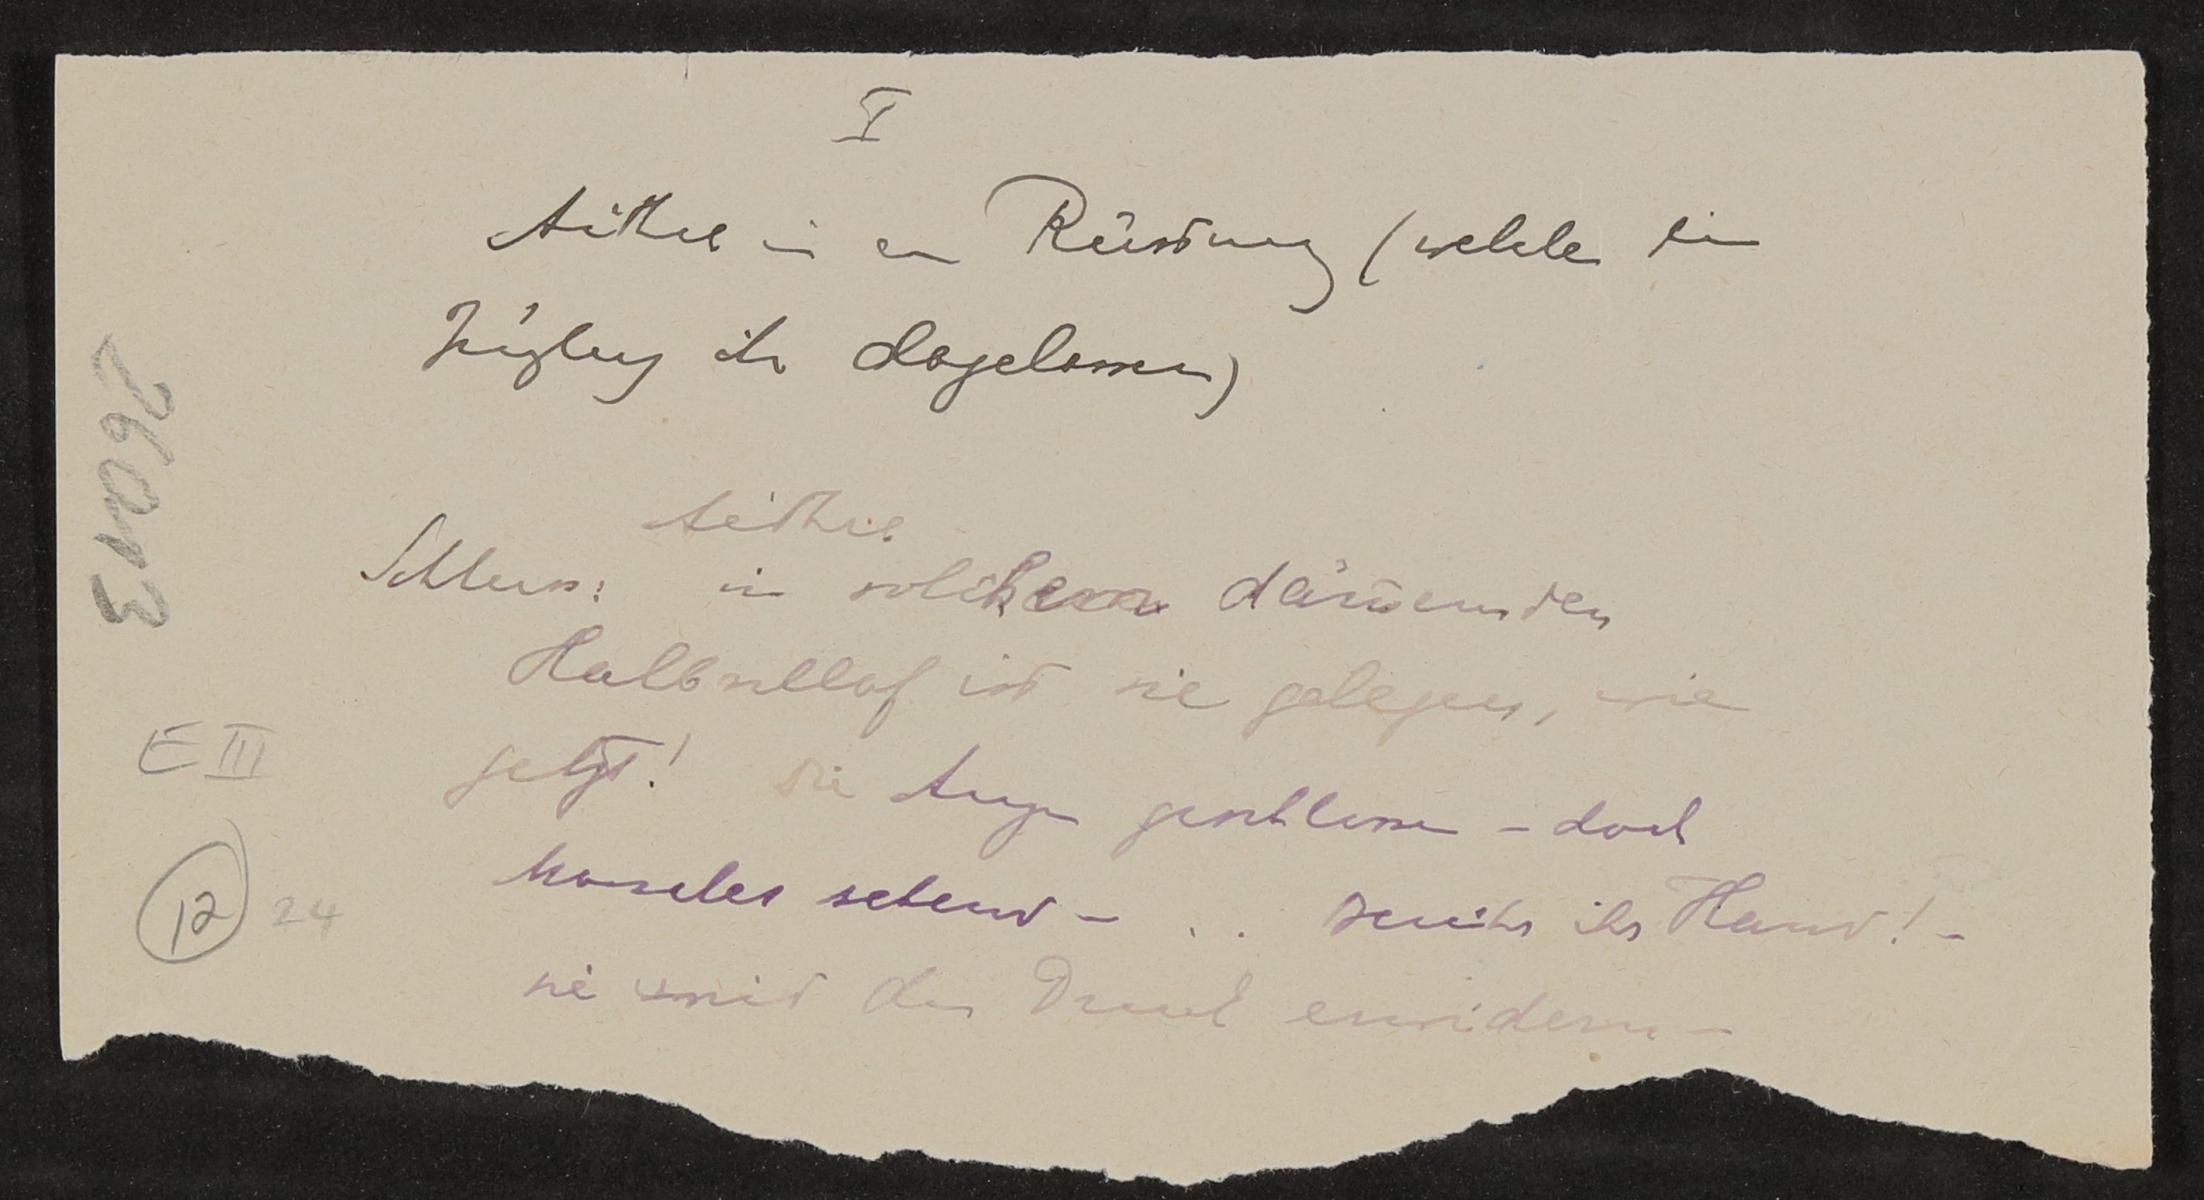 I
Aithra in en Rüstung (welche ein
Jüngling ihr dagelassen)
Aithra
Schluss: in solchem däm̄ernden
Halbschlaf ist sie gelegen, wie
jetzt! die Augen geschlossen – doch
Manches sehend – . . ihr Hand! –
sie wird den Druck erwidern –
E III
12 24